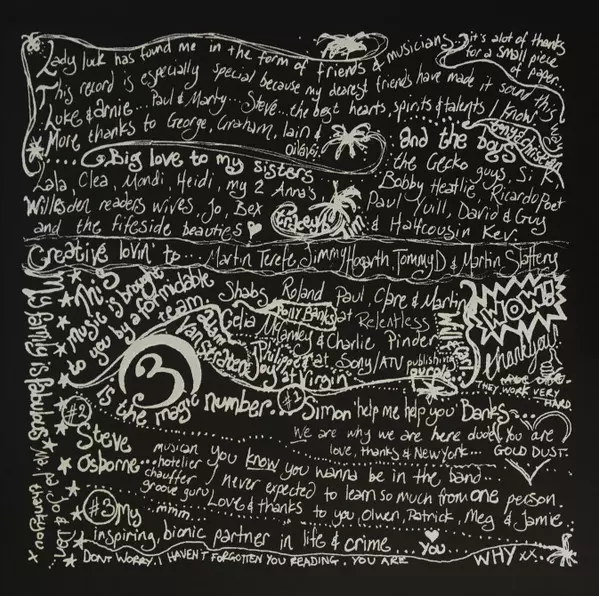 Lady luck has found me in the form of friends & musicians
it's alot of thanks
for a small piece
of paper...
This record is especially special because my dearest friends have made it sound this
Luke & arnie... Paul & Marty... Steve... the best hearts, spirits & talents I know
More thanks to George, Graham, Iain &
.... Big love to my sisters
and the boys
the Gecko guys S.P.
Lala, Clea, Mondi, Heidi, my 2 Anna's
Bobby Heatlie, Ricardo Poet
Willesden readers wives, Jo, Bex
Paul Yuill, David & Guy
and the fiteside beauties
& Halfcousin Kev.
Creative lovin' to... Martin Terefe, Jimmy Hogarth, Tommy D & Martin Slattery
This
music is brought
to you by a formidable
team.
Shabs, Roland Paul, Clare & Martin
Polly Banks at Relentless
Celia McCamley & Charlie Pinder
Philippe at Sony/ATV publishing
Joy at Virgin
WOW!
thankyou!
THEY WORK VERY
HARD
3
is the magic number...
#1 Simon 'help me help you' Banks...
We are why we are here dude
love, thanks & New York....
You are
GOLD DUST.
My family is fabulous
Mr. B, Jo & Don
thankyou x
#2
Steve
Osborne...
musician
hotelier
chauffer
groove guru
mmm...
you know you wanna be in the band......
I never expected to learn so much from one person
Love & thanks to you, Olwen, Patrick, Meg & Jamie
#3 My
inspiring, bionic partner in life & crime... You
DONT WORRY. I HAVEN'T FORGOTTEN YOU READING. YOU ARE WHY xx.